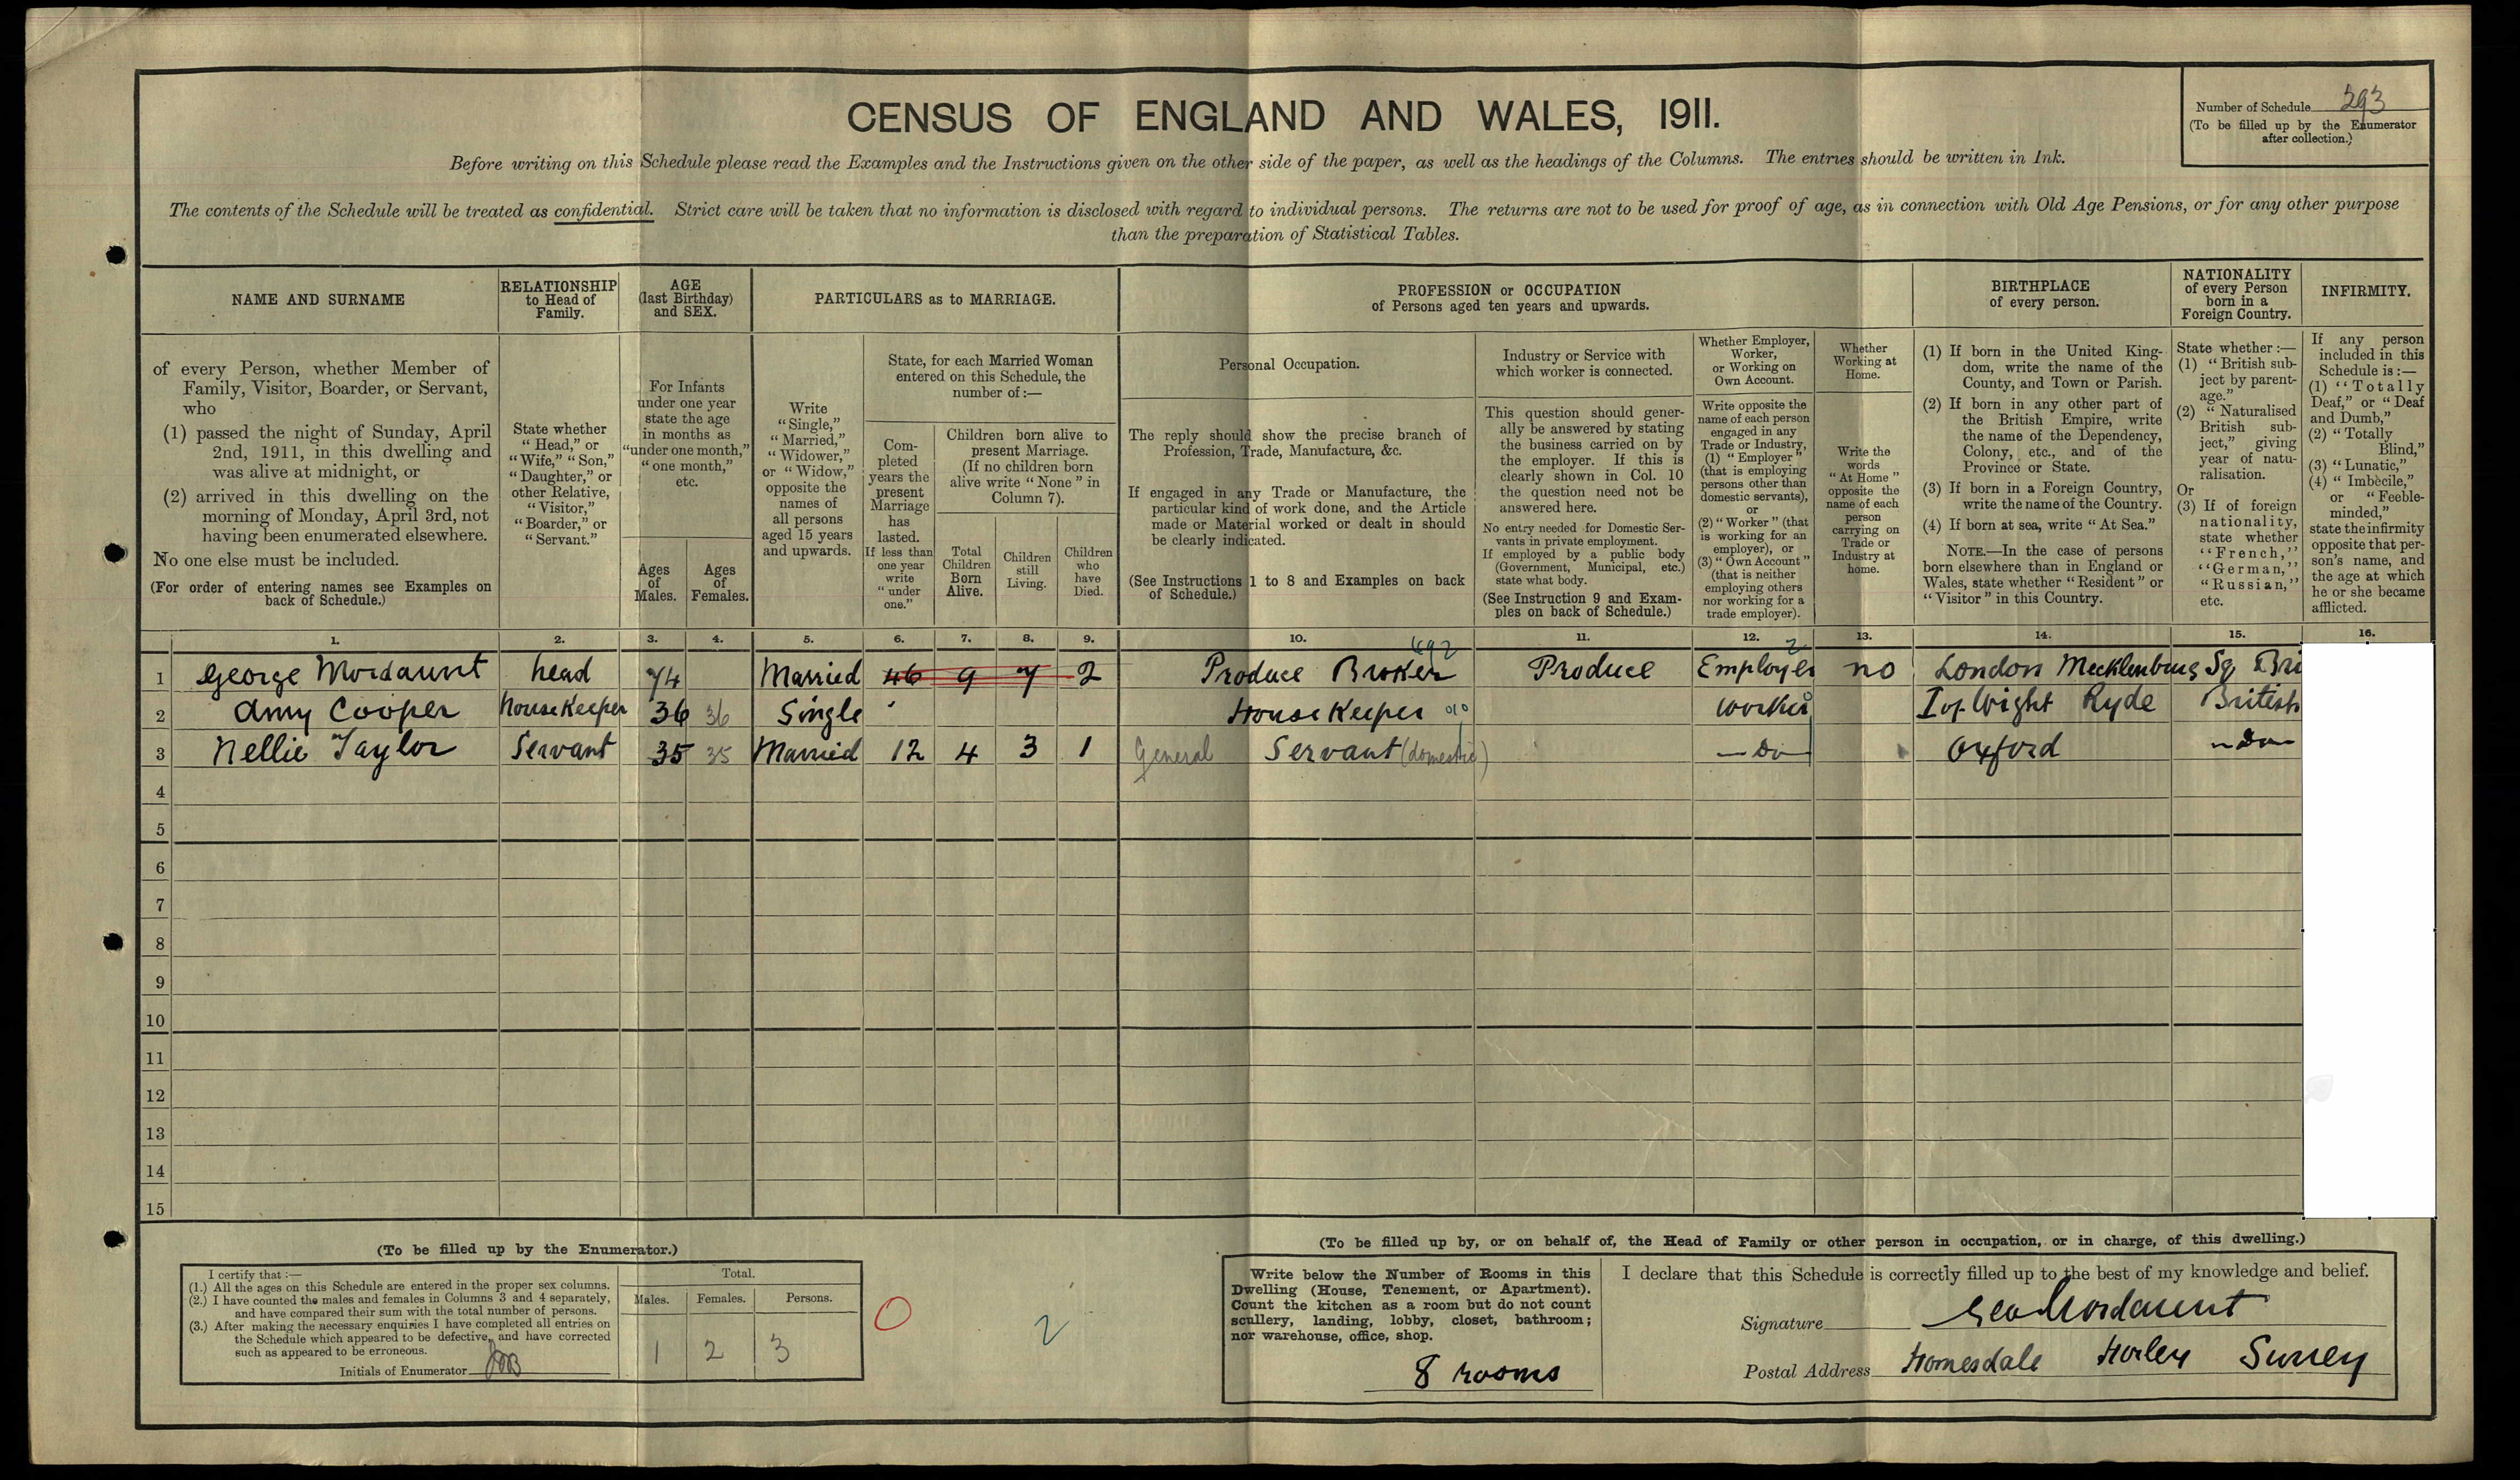 CENSUS OF ENGLAND AND WALES, 1911.
Number of Schedule 293
(To be filled up by the Enumerator
after collection.)
Before writing on this Schedule please read the Examples and the Instructions given on the other side of the paper, as well as the headings of the Columns. The entries should be written in Ink.
The contents of the Schedule will be treated as confidential. Strict care will be taken that no information is disclosed with regard to individual persons. The returns are not to be used for proof of age, as in connection with Old Age Pensions, or for any other purpose
than the preparation of Statistical Tables.
NAME AND SURNAME
RELATIONSHIP
to Head of
Family.
AGE
(last Birthday)
and SEX.
PARTICULARS as to MARRIAGE.
PROFESSION or OCCUPATION
of Persons aged ten years and upwards.
BIRTHPLACE
of every person.
NATIONALITY
of every Person
born in a
Foreign Country.
INFIRMITY.
of every Person, whether Member of
Family, Visitor, Boarder, or Servant,
who
(1) passed the night of Sunday, April
2nd, 1911, in this dwelling and
was alive at midnight, or
(2) arrived in this dwelling on the
morning of Monday, April 3rd, not
having been enumerated elsewhere.
No one else must be included.
(For order of entering names see Examples on
back of Schedule.)
State whether
"Head," or
"Wife," "Son,"
"Daughter," or
other Relative,
"Visitor,"
"Boarder," or
"Servant."
For Infants
under one year
state the age
in months as
"under one month,"
"one month,"
etc.
Ages
of
Males.
Ages
of
Females.
Write
"Single,"
"Married,"
"Widower,"
or "Widow,"
opposite the
names of
all persons
aged 15 years
and upwards.
State, for each Married Woman
entered on this Schedule, the
number of:—
Com-
pleted
years the
present
Marriage
has
lasted.
If less than
one year
write
"under
one."
Children born alive to
present Marriage.
(If no children born
alive write "None" in
Column 7).
Total
Children
Born
Alive.
Children
still
Living.
Children
who
have
Died.
Personal Occupation.
The reply should show the precise branch of
Profession, Trade, Manufacture, &c.
If engaged in any Trade or Manufacture, the
particular kind of work done, and the Article
made or Material worked or dealt in should
be clearly indicated.
(See Instructions 1 to 8 and Examples on back
of Schedule.)
Industry or Service with
which worker is connected.
This question should gener-
ally be answered by stating
the business carried on by
the employer. If this is
clearly shown in Col. 10
the question need not be
answered here.
No entry needed for Domestic Ser-
vants in private employment.
If employed by a public body
(Government, Municipal, etc.)
state what body.
(See Instruction 9 and Exam-
ples on back of Schedule.)
Whether Employer,
Worker,
or Working on
Own Account.
Write opposite the
name of each person
engaged in any
Trade or Industry,
(1) "Employer"
(that is employing
persons other than
domestic servants),
or
(2) "Worker" (that
is working for an
employer), or
(3) "Own Account"
(that is neither
employing others
nor working for a
trade employer).
Whether
Working at
Home.
Write the
words
"At Home"
opposite the
name of each
person
carrying on
Trade or
Industry at
home.
(1) If born in the United King-
dom, write the name of the
County, and Town or Parish.
(2) If born in any other part of
the British Empire, write
the name of the Dependency,
Colony, etc., and of the
Province or State.
(3) If born in a Foreign Country,
write the name of the Country.
(4) If born at sea, write "At Sea."
NOTE.—In the case of persons
born elsewhere than in England or
Wales, state whether "Resident" or
"Visitor" in this Country.
State whether:—
(1) "British sub-
ject by parent-
age."
(2) "Naturalised
British sub-
ject," giving
year of natu-
ralisation.
Or
(3) If of foreign
nationality,
state whether
"French,"
"German,"
"Russian,"
etc.
If any person
included in this
Schedule is:—
(1) "Totally
Deaf," or "Deaf
and Dumb,"
(2) "Totally
Blind,"
(3) "Lunatic,"
(4) "Imbecile,"
or "Feeble-
minded,"
state the infirmity
opposite that per-
son's name, and
the age at which
he or she became
afflicted.
1. 2. 3. 4. 5. 6. 7. 8. 9. 10. 11. 12. 13. 14. 15. 16.
692 2
1 George Mordaunt head 74 Married 46 9 7 2 Produce Broker Produce Employer no London Mecklenburg Sq Bri
2 Amy Cooper House Keeper 36 36 Single House Keeper 010 worker I of Wight Ryde British
3 Nellie Taylor Servant 35 35 Married 12 4 3 1 General Servant (domestic) —Do— Oxford —Do—
4
5
6
7
8
9
10
11
12
13
14
15
(To be filled up by the Enumerator.)
I certify that:—
(1.) All the ages on this Schedule are entered in the proper sex columns.
(2.) I have counted the males and females in Columns 3 and 4 separately,
and have compared their sum with the total number of persons.
(3.) After making the necessary enquiries I have completed all entries on
the Schedule which appeared to be defective, and have corrected
such as appeared to be erroneous.
Initials of Enumerator
Total.
Males. Females. Persons.
1 2 3
0 2
(To be filled up by, or on behalf of, the Head of Family or other person in occupation, or in charge, of this dwelling.)
Write below the Number of Rooms in this
Dwelling (House, Tenement, or Apartment).
Count the kitchen as a room but do not count
scullery, landing, lobby, closet, bathroom;
nor warehouse, office, shop.
8 rooms
I declare that this Schedule is correctly filled up to the best of my knowledge and belief.
Signature Geo Mordaunt
Postal Address Homesdale Horley Surrey